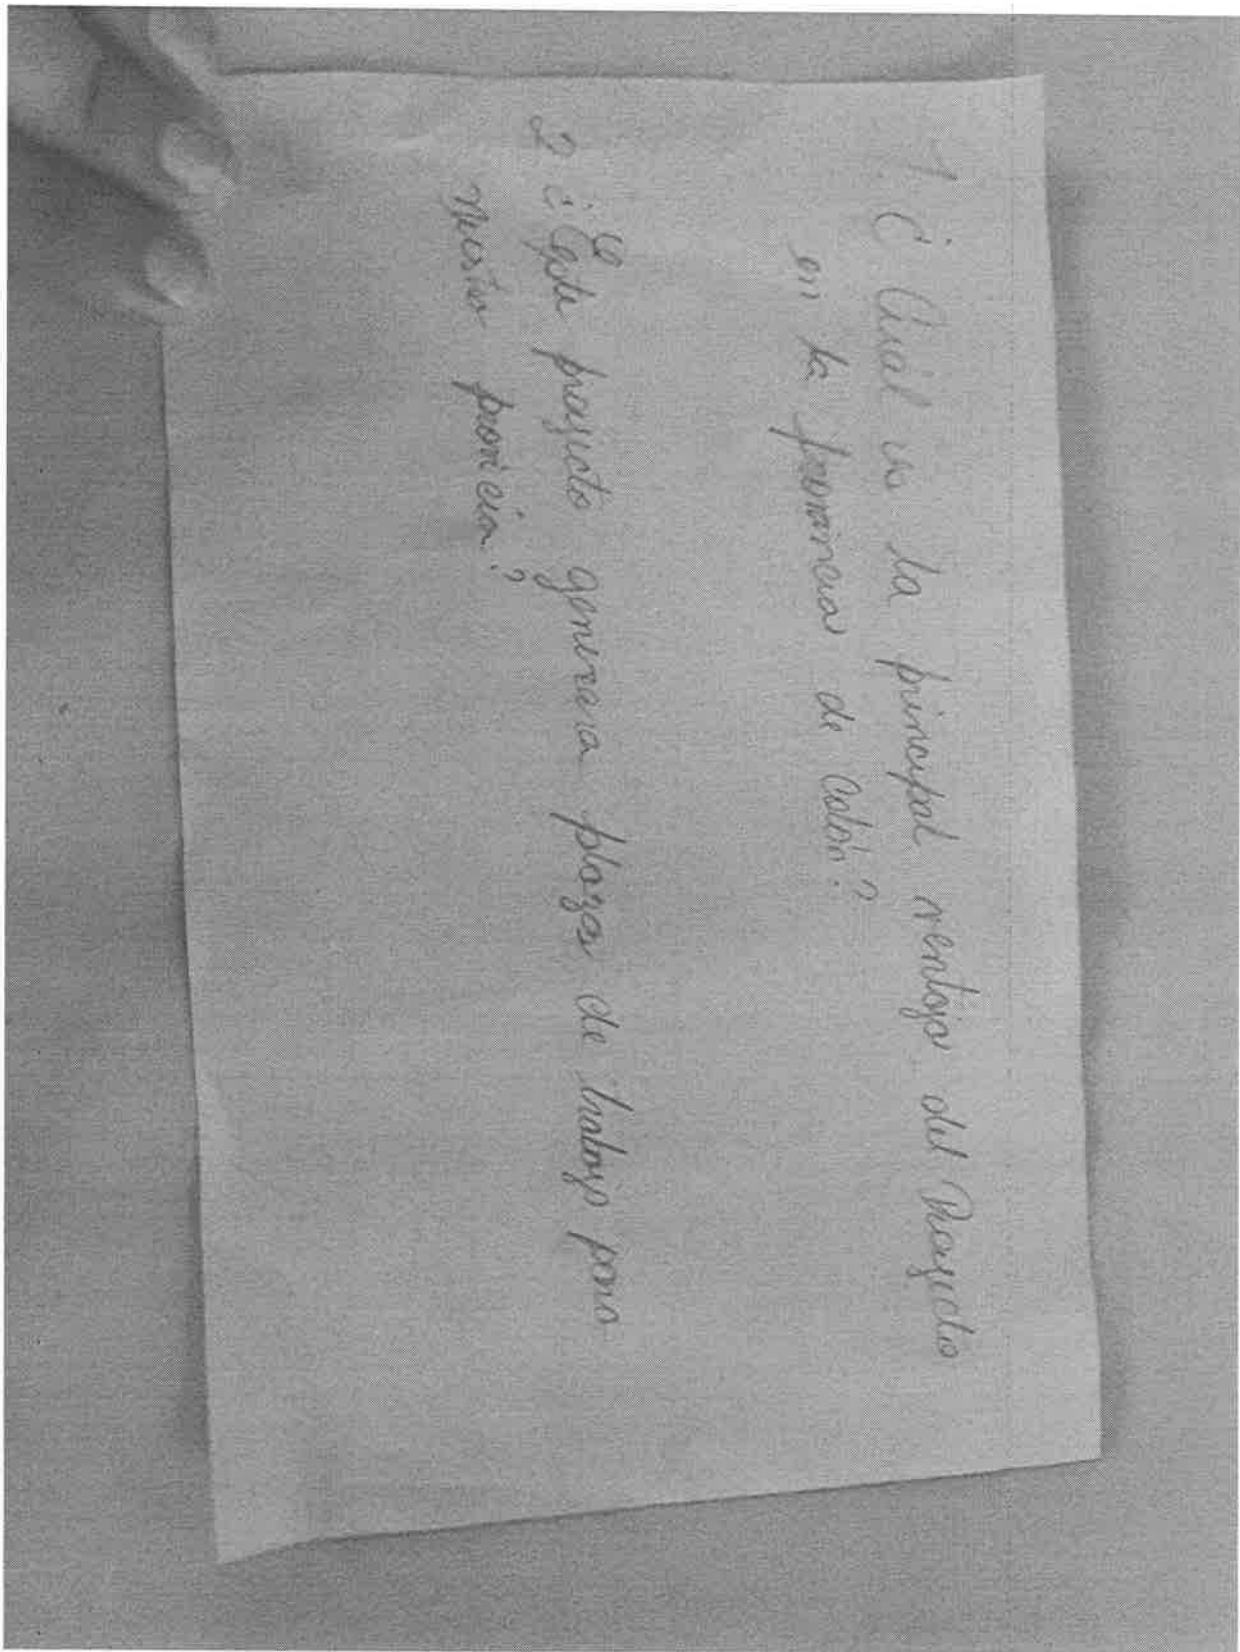 1 ¿Cuál es la principal ventaja del Proyecto
en la provincia de colón?
2 ¿Este proyecto generara plazas de trabajo para
Nuestra provincia?